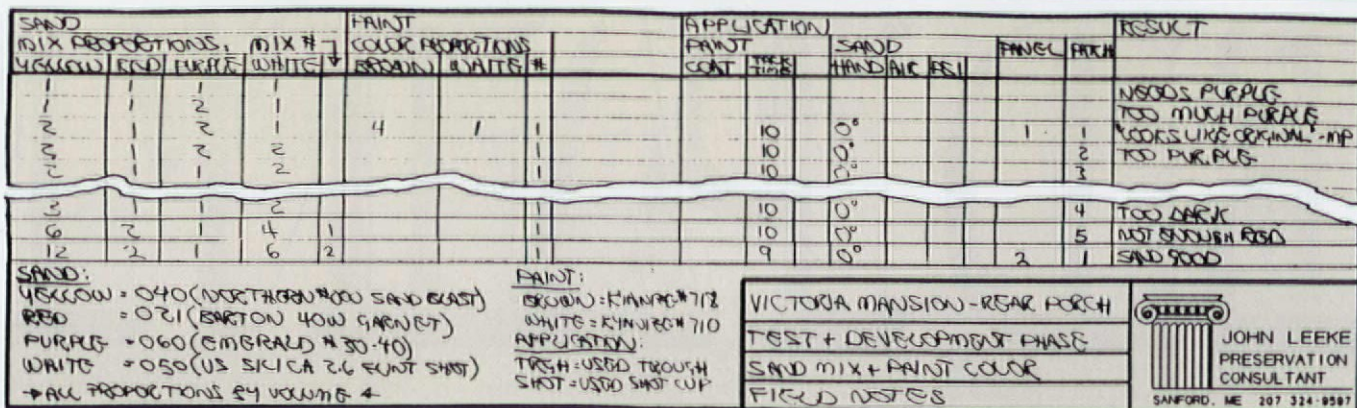 SAND PAINT APPLICATION RESULT
MIX PROPORTIONS, MIX # COLOR PROPORTIONS PAINT SAND PANEL PATCH
YELLOW RED PURPLE WHITE BROWN WHITE # COAT TACK TIME HAND AIR PSI
1 1 1 1 NEEDS PURPLE
1 1 2 1 TOO MUCH PURPLE
2 1 2 1 4 1 1 10 0° 1 1 "LOOKS LIKE ORIGINAL"-MP
2 1 2 2 1 10 0° 2 TOO PURPLE
2 1 1 2 1 10 0° 3
3 1 1 2 1 10 0° 4 TOO DARK
6 2 1 4 1 1 10 0° 5 NOT ENOUGH RED
12 2 1 6 2 1 9 0° 2 1 SAND GOOD
SAND:
YELLOW = 040 (NORTHERN #00 SAND BLAST)
RED = 021 (BARTON 40W GARNET)
PURPLE = 060 (EMERALD # 30-40)
WHITE = 050 (US SILICA 2.6 FLINT SHOT)
→ ALL PROPORTIONS BY VOLUME ←
PAINT:
BROWN = #718
WHITE = #710
APPLICATION:
TRGH = USED TROUGH
SHOT = USED SHOT CUP
VICTORIA MANSION - REAR PORCH
TEST + DEVELOPMENT PHASE
SAND MIX + PAINT COLOR
FIELD NOTES
JOHN LEEKE
PRESERVATION
CONSULTANT
SANFORD, ME 207 324-9597